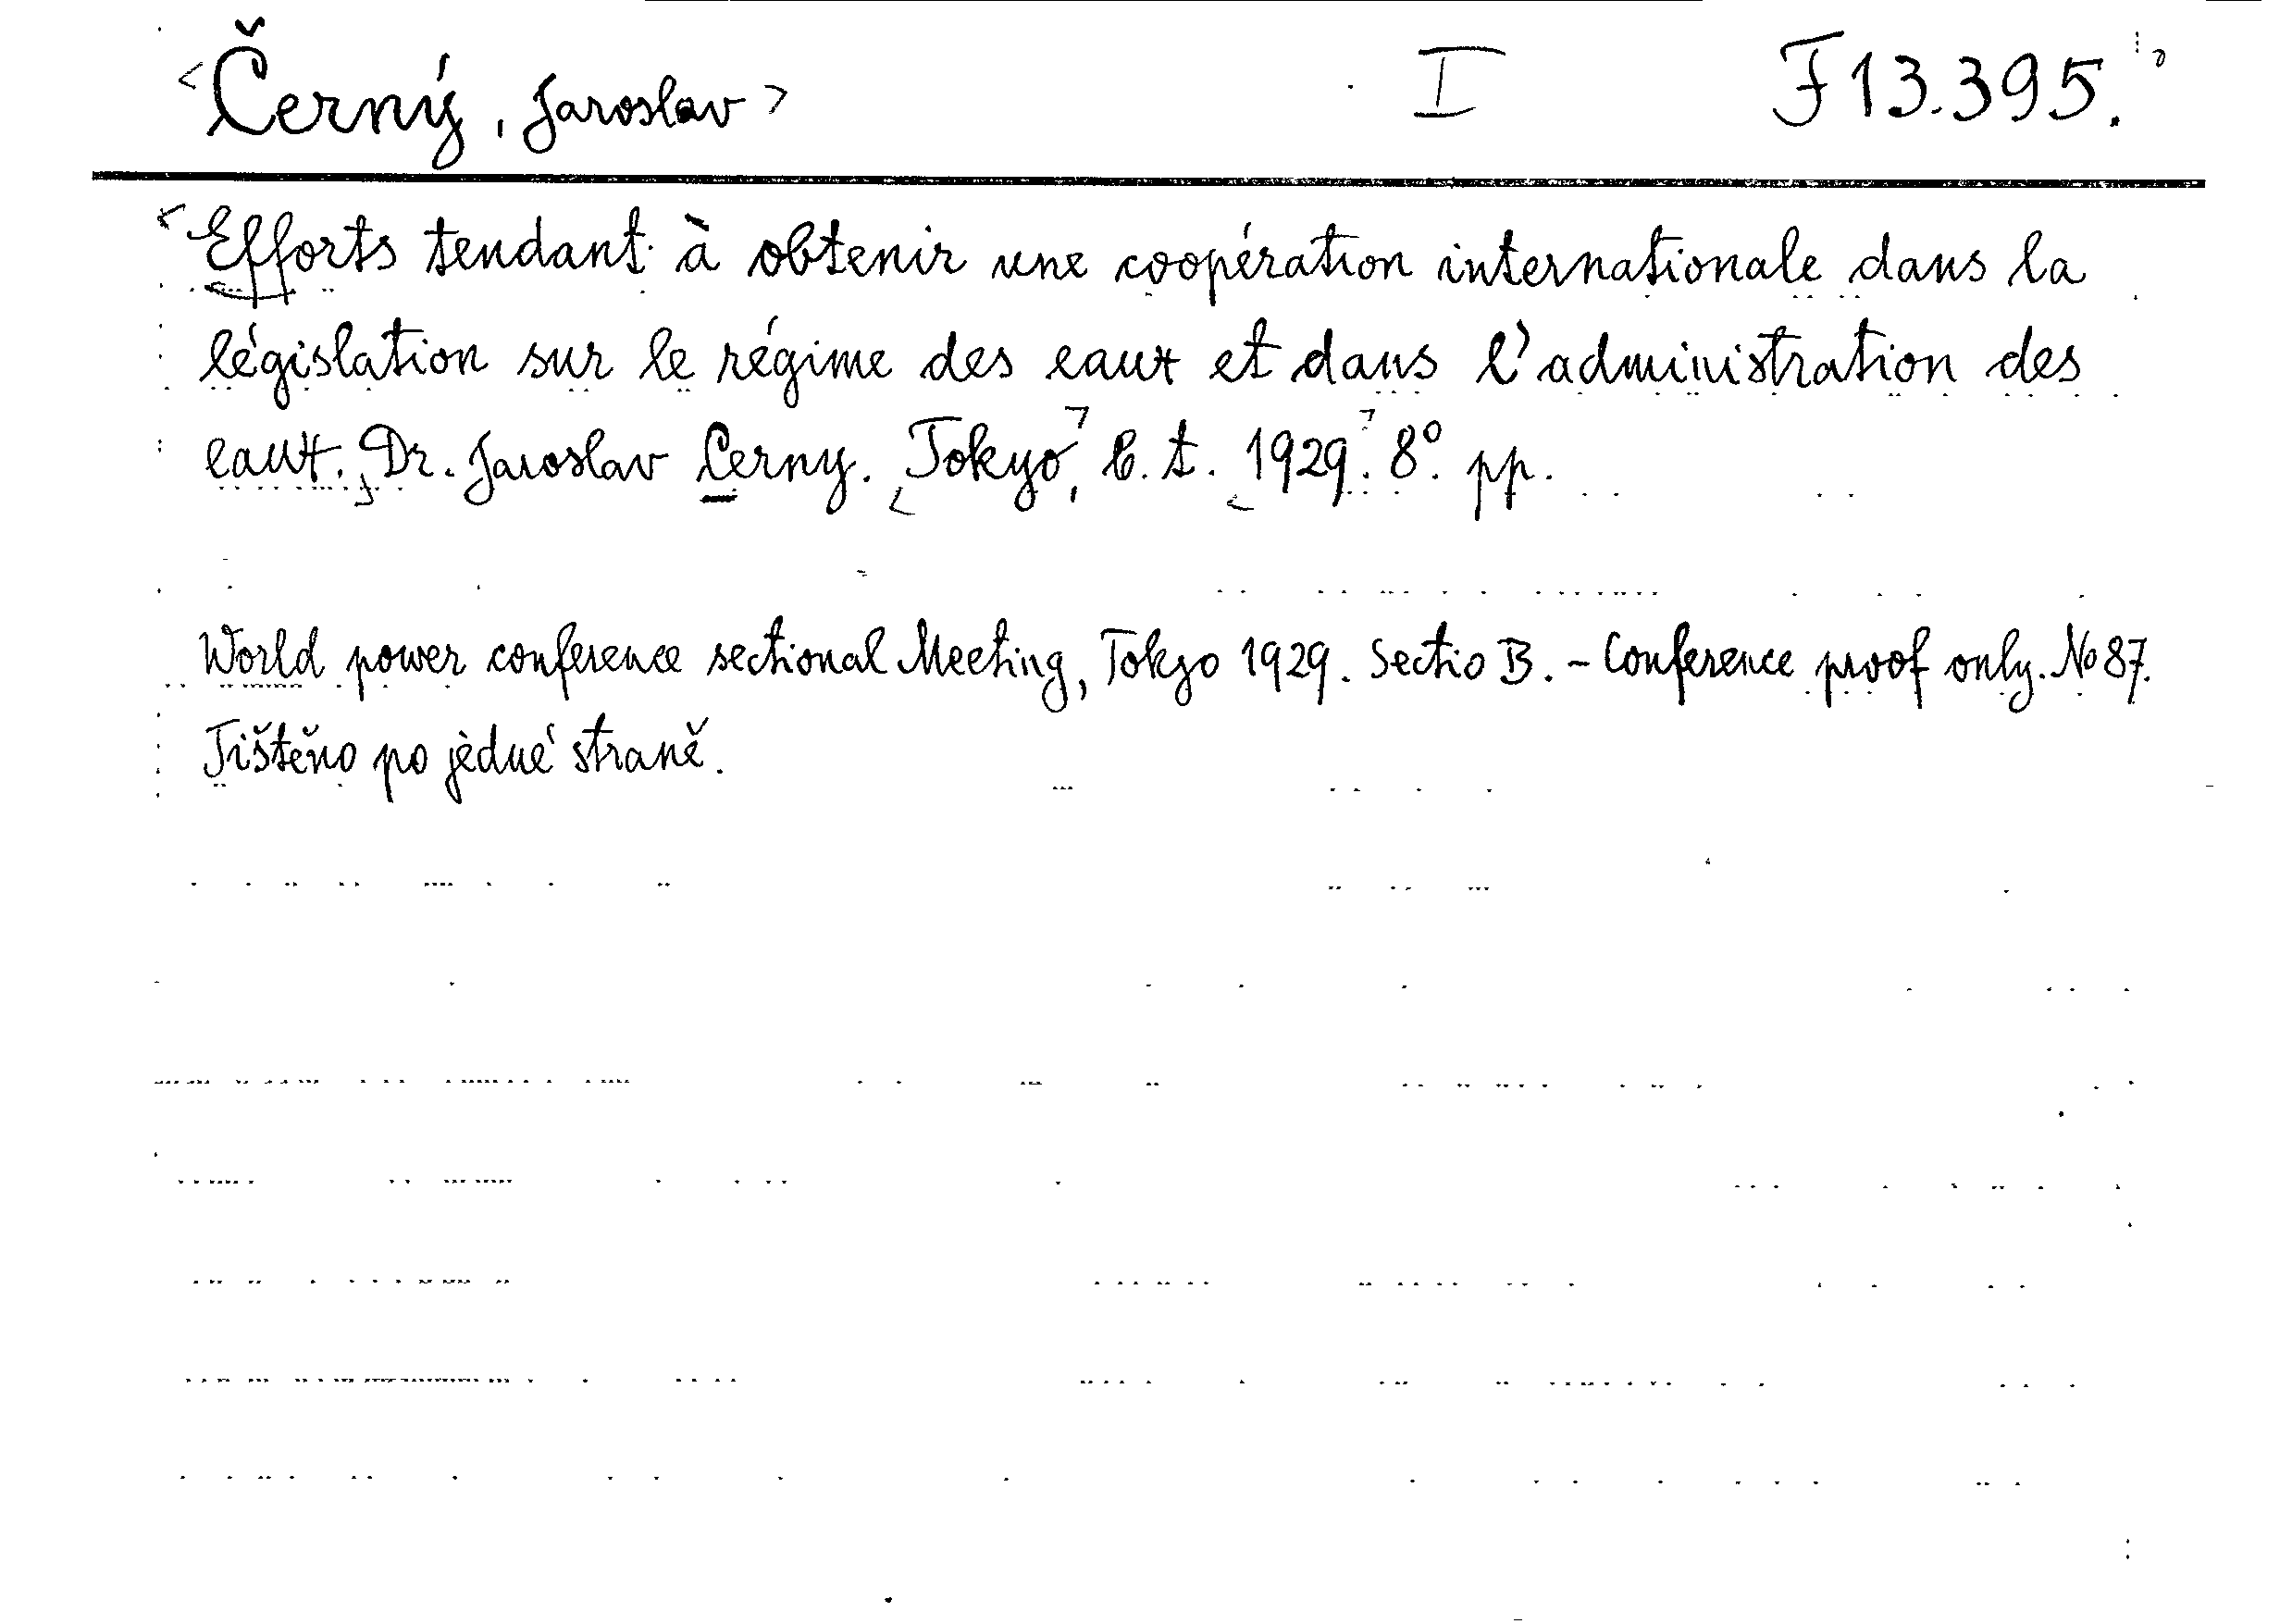 <Černý, Jaroslav> I F 13.395.
<Efforts tendant à obtenir une coopération internationale dans la
législation sur le régime des eaux et dans l'administration des
eaux. Dr. Jaroslav Cerny. <Tokyo>, b. t. <1929>. 8°. pp.
World power conference sectional Meeting, Tokyo 1929. Sectio B. - Conference proof only. No 87.
Tištěno po jedné straně.